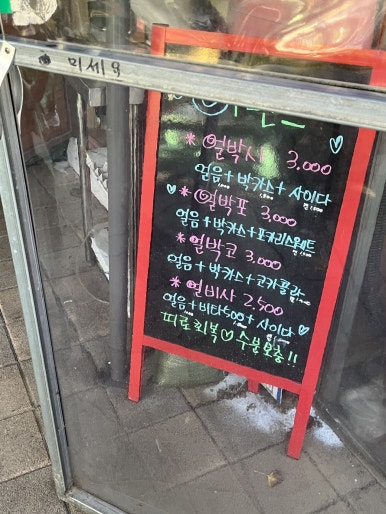 미세용
* 얼박사 3,000
얼음+박카스+사이다
* 얼박포 3,000
얼음+박카스+포카리스웨트
* 얼박코 3,000
얼음+박카스+코카콜라
* 얼비사 2,500
얼음+비타500+사이다
피로회복♡수분보충!!